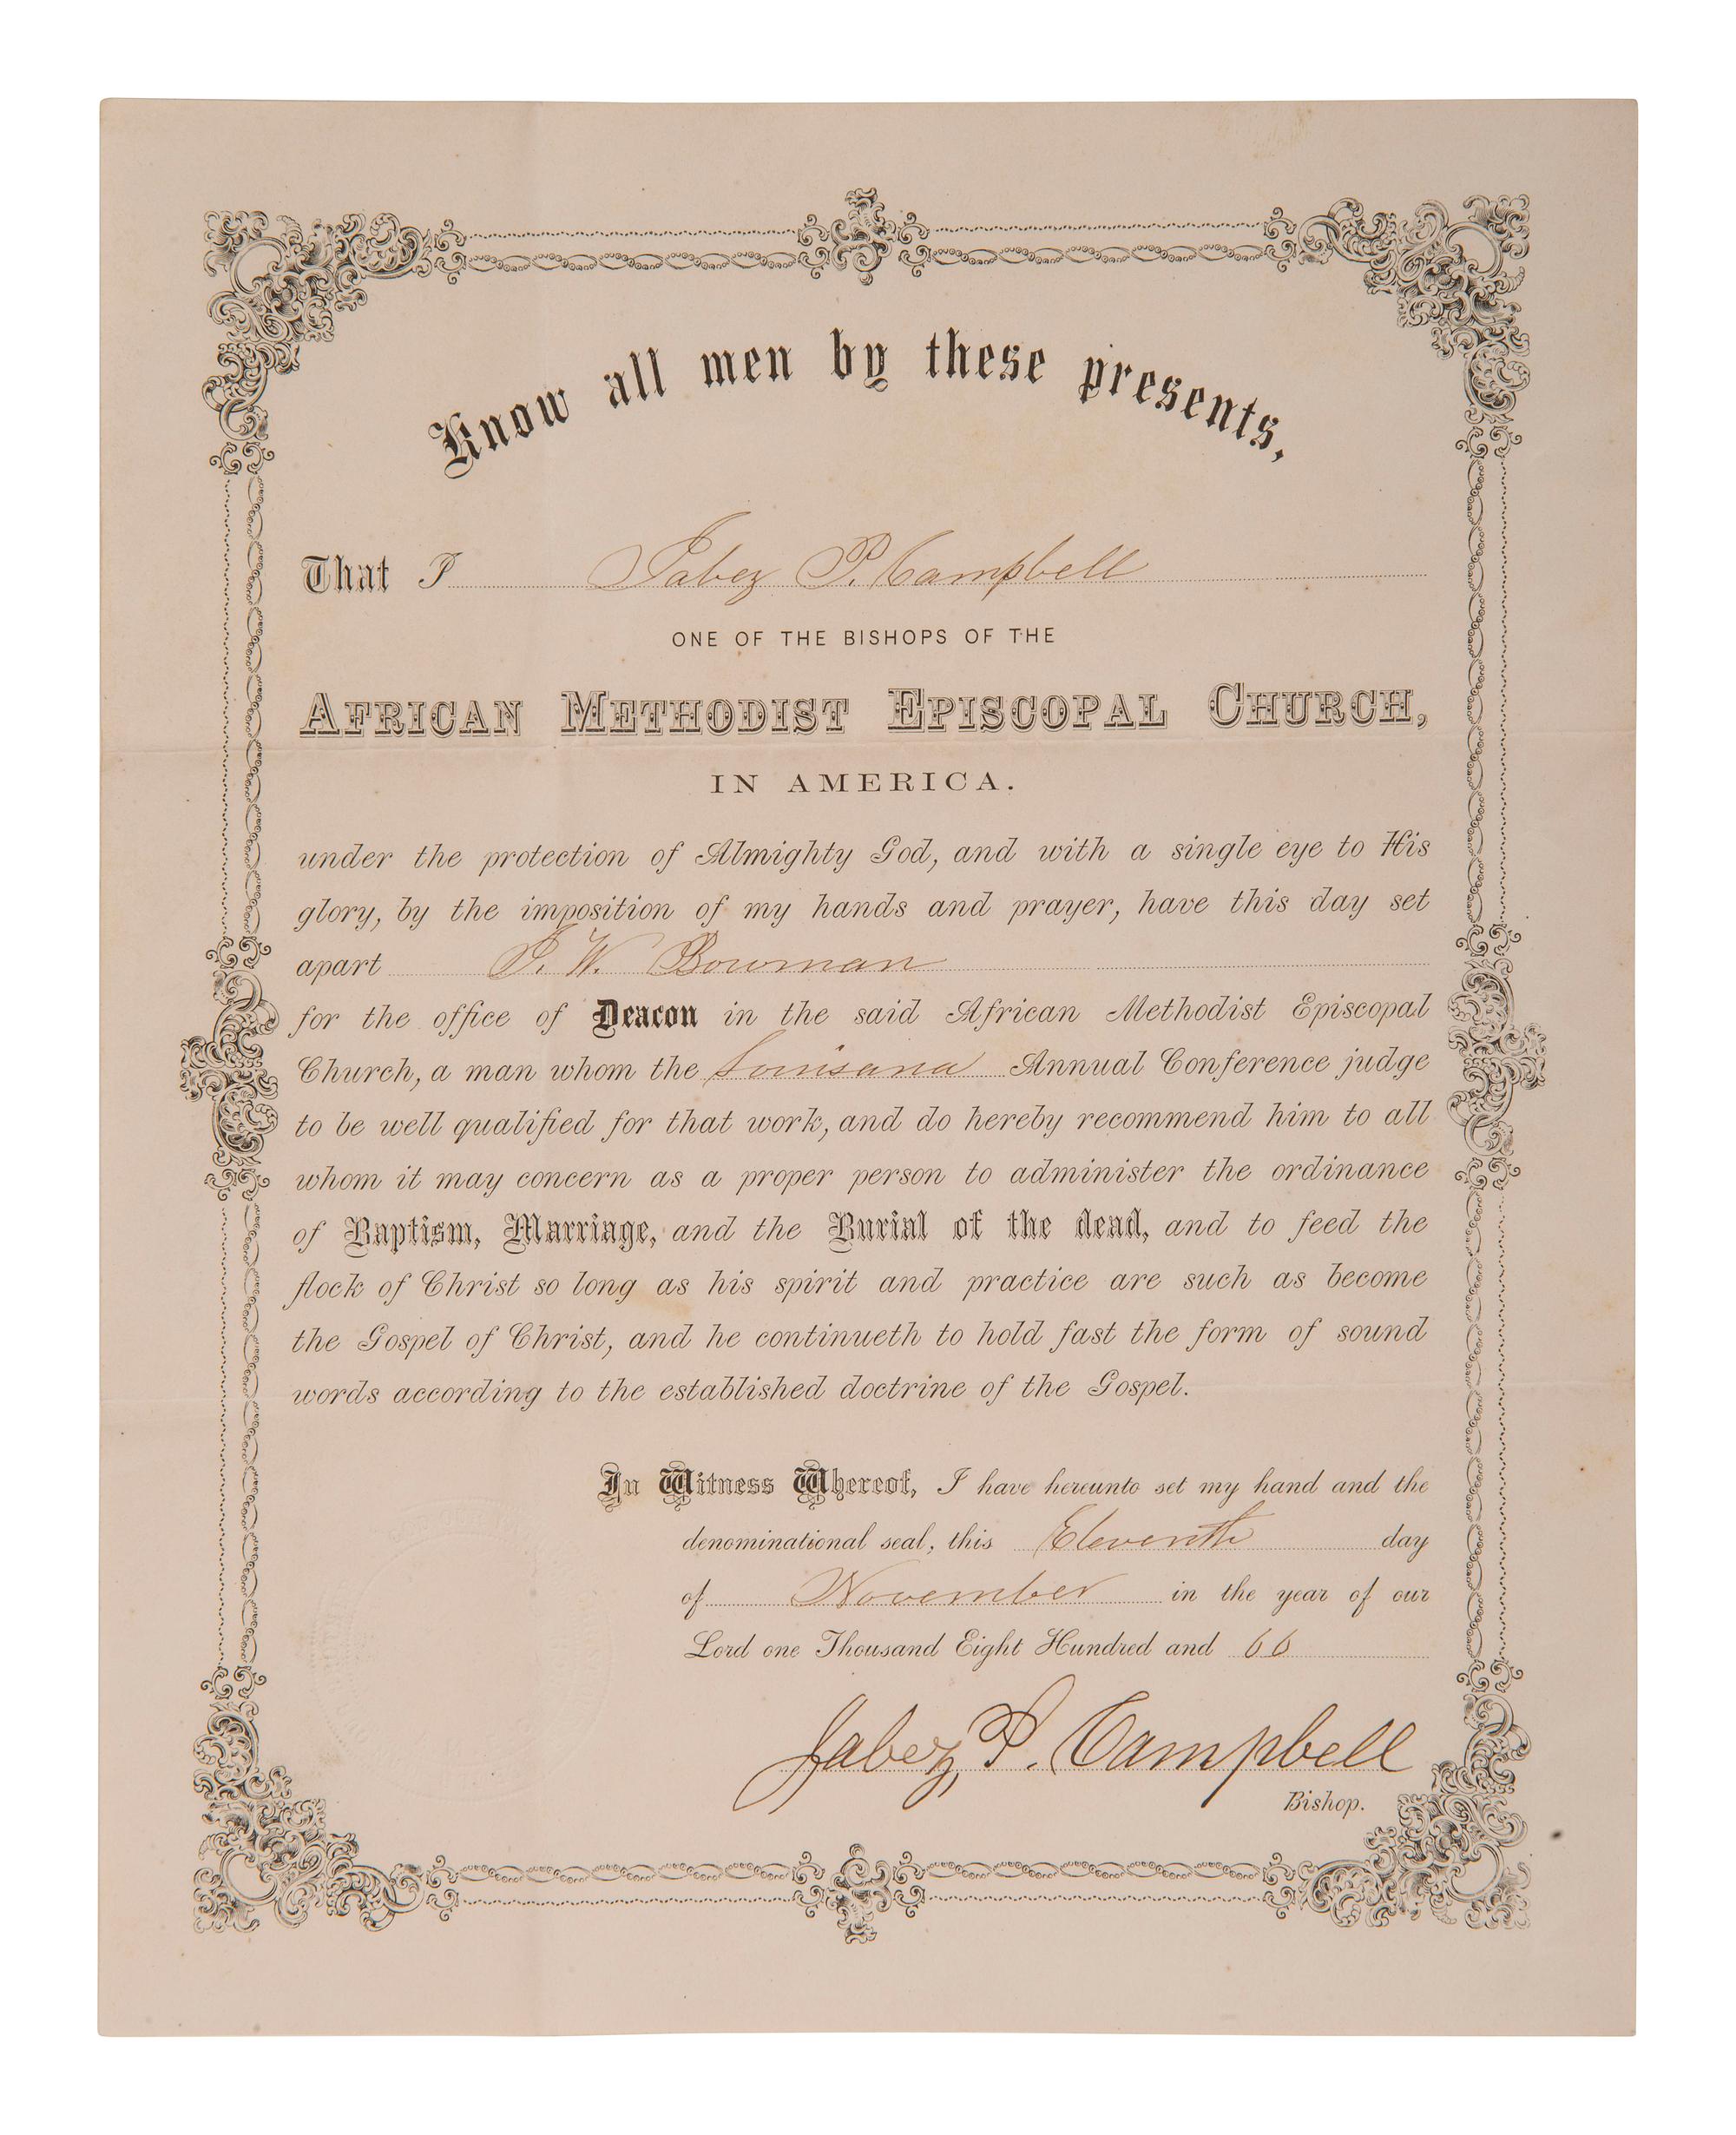 Know all men by these presents,
That I Jabez P. Campbell
ONE OF THE BISHOPS OF THE
AFRICAN METHODIST EPISCOPAL CHURCH,
IN AMERICA.
under the protection of Almighty God, and with a single eye to His
glory, by the imposition of my hands and prayer, have this day set
apart J. W. Bowman
for the office of Deacon in the said African Methodist Episcopal
Church, a man whom the Louisana Annual Conference judge
to be well qualified for that work, and do hereby recommend him to all
whom it may concern as a proper person to administer the ordinance
of Baptism, Marriage, and the Burial of the dead, and to feed the
flock of Christ so long as his spirit and practice are such as become
the Gospel of Christ, and he continueth to hold fast the form of sound
words according to the established doctrine of the Gospel.
In Witness Whereof, I have hereunto set my hand and the
denominational seal, this Eleventh day
of November in the year of our
Lord one Thousand Eight Hundred and 66
Jabez P. Campbell
Bishop.